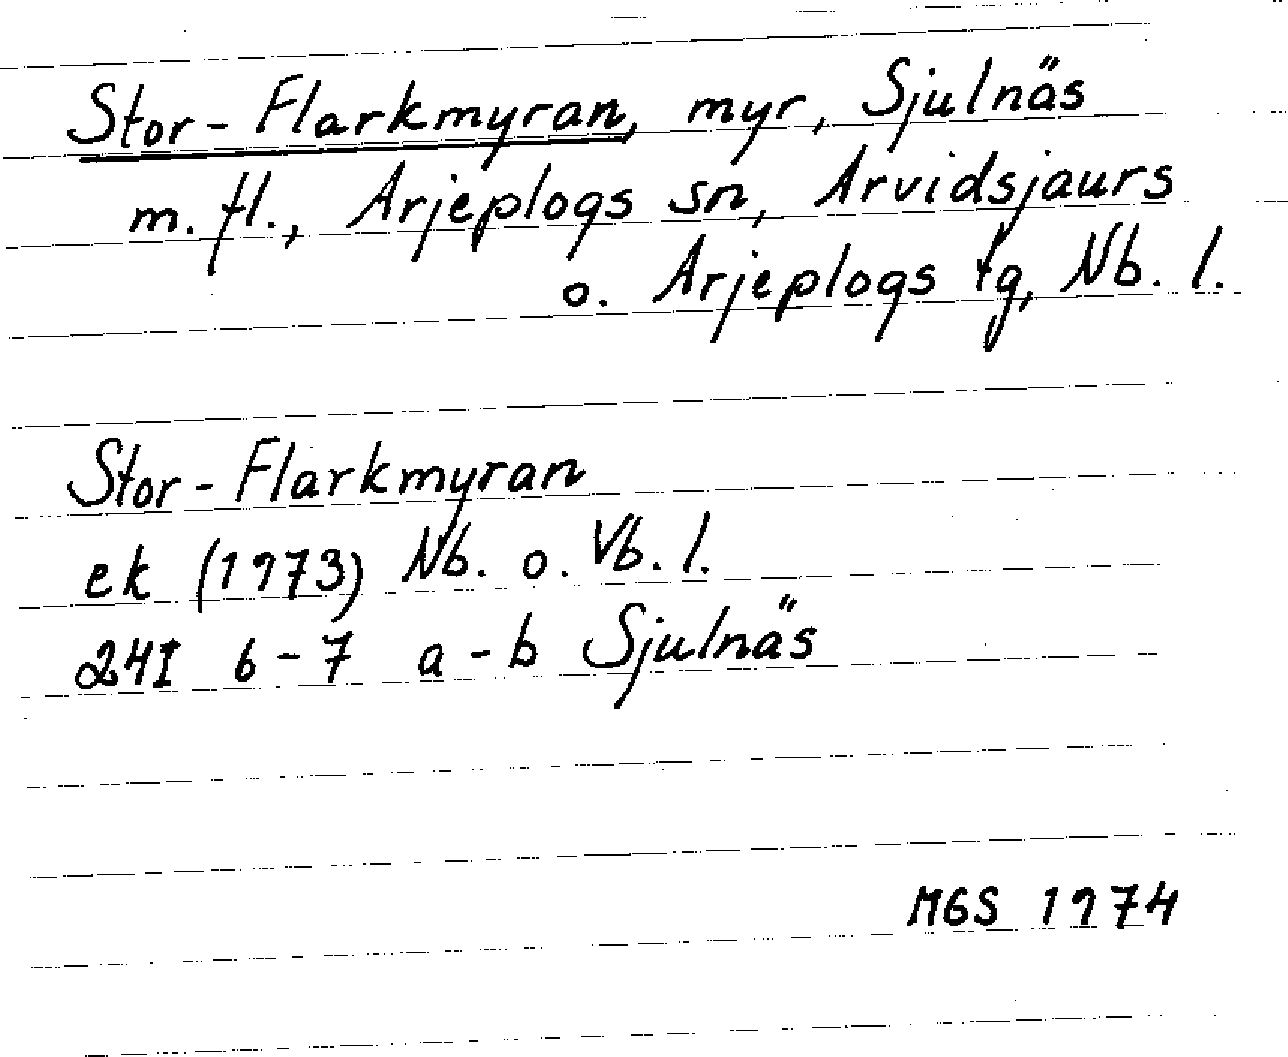 Stor-Flarkmyran, myr, Sjulnäs
m. fl., Arjeplogs sn, Arvidsjaurs
o. Arjeplogs tg, Nb. l.
Stor-Flarkmyran
ek (1973) Nb. o. Vb. l.
24I 6-7 a-b Sjulnäs
MGS 1974